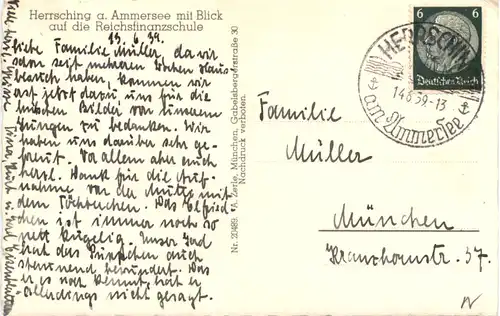 Herrsching a. Ammersee mit Blick
auf die Reichsfinanzschule
13. 6. 39.
Liebe Familie Müller, da wir
schon seit mehreren Wochen Haus-
besuch haben, kommen wir
erst jetzt dazu uns für die
hübschen Bilder von unseren
Jungen zu bedanken. Wir
haben uns darüber sehr ge-
freut. Vor allem aber auch
herzl. Dank für die Auf-
nahme von der Mutti mit
dem Töchterchen. Das Elfried
chen ist immer noch so
nett kugelig. Unser Gerd
hat das Püppchen auch
staunend bewundert. Was
er es noch kennt, hat er
allerdings nicht gesagt.
Viele herzl. Grüsse
Nr. 20489 A. Zerle, München, Gabelsbergerstraße 30
Nachdruck verboten.
6 6
Deutsches Reich
HERRSCHING
14.6.39-13
am Ammersee
Familie
Müller
München
37.